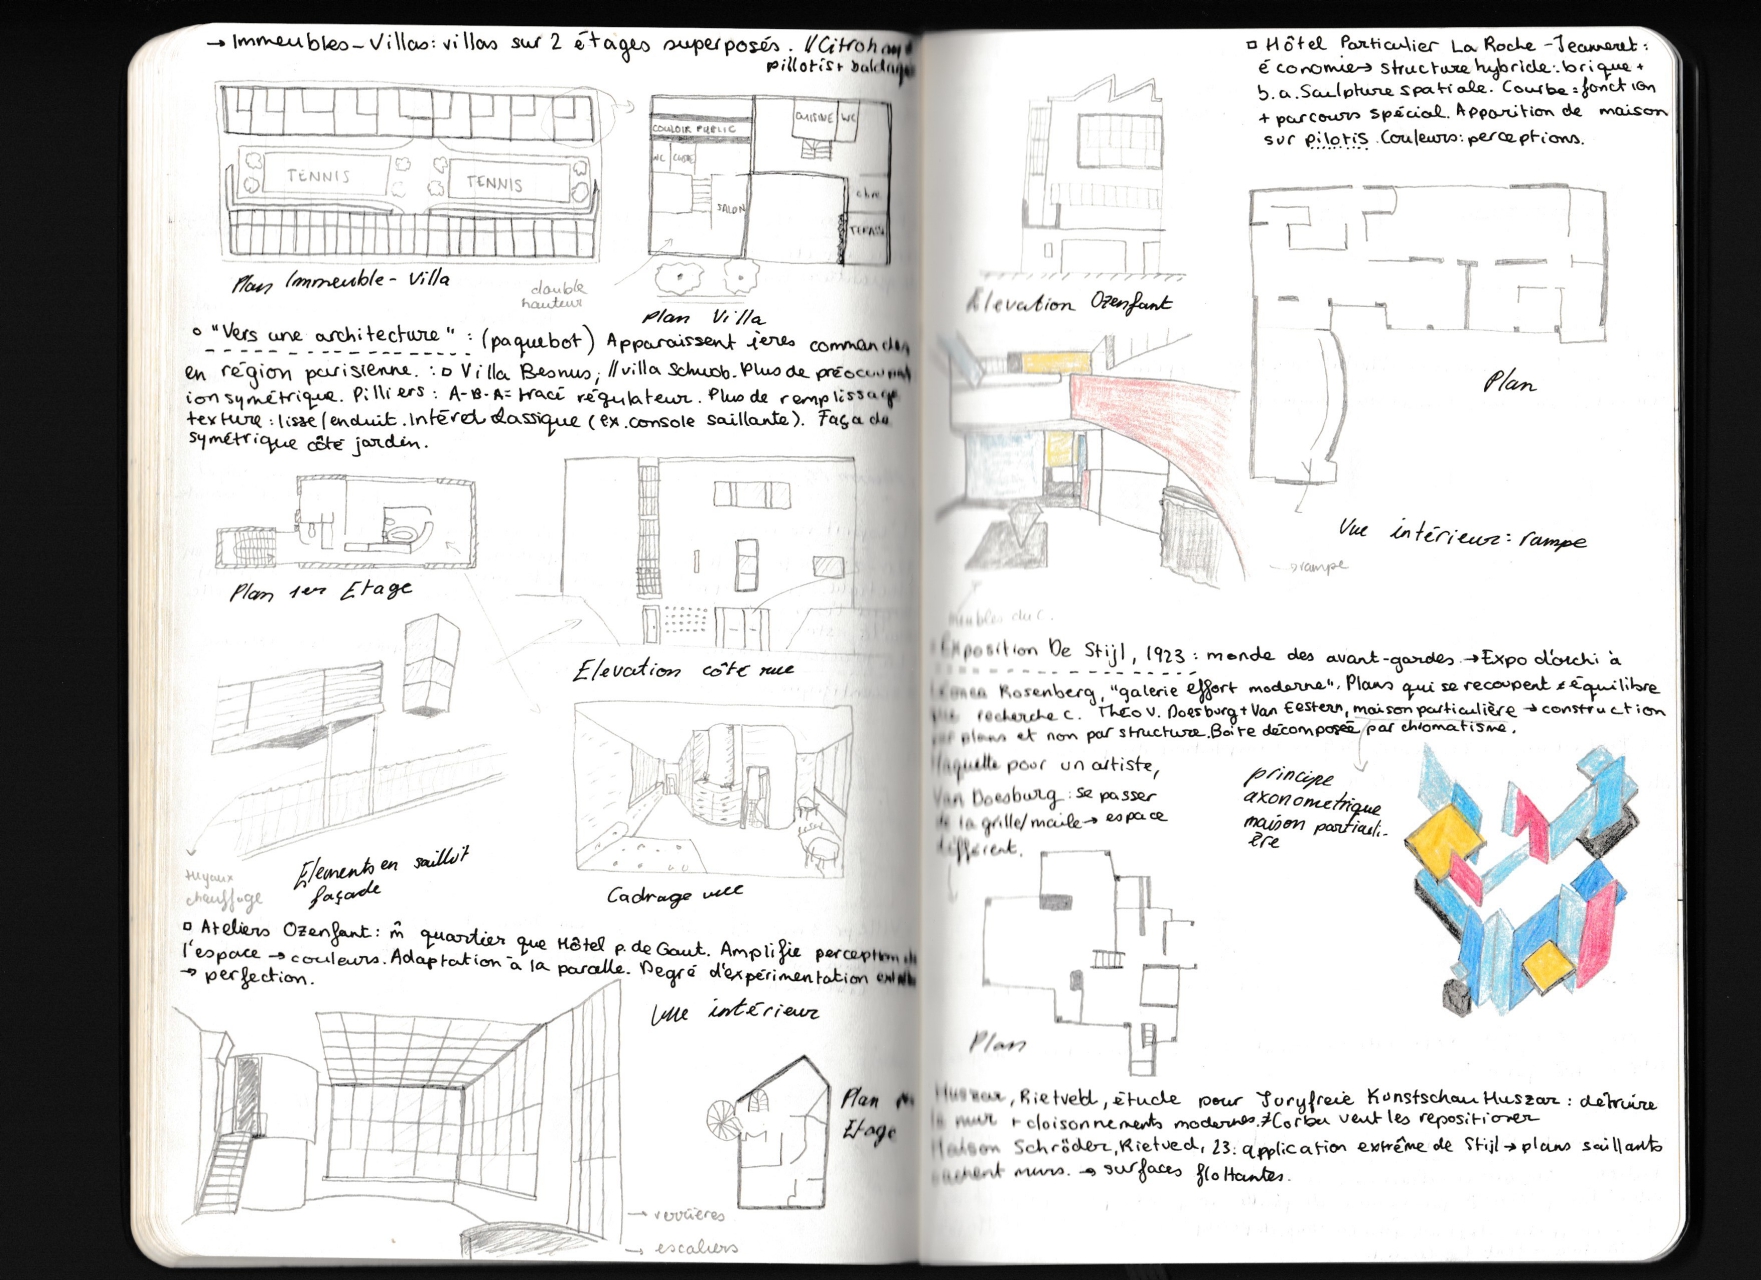 → Immeubles-Villas: villas sur 2 étages superposés. //Citrohan
pillotis+
COULOIR PUBLIC
CUISINE WC
WC
SALON
chre
TERASSE
TENNIS
TENNIS
Plan Immeuble-Villa
double
hauteur
Plan Villa
o "Vers une architecture" : (paquebot) Apparaissent 1ères commandes
en région parisienne. : □ Villa Besnus, //villa Schwob. Plus de préoccupat
ion symétrique. Pilliers : A-B-A= tracé régulateur. Plus de remplissage
texture : lisse/enduit. Intérêt classique (ex. console saillante). Façade
symétrique côté jardin.
Plan 1er Etage
Elevation côté rue
tuyaux
chauffage
Elements en saillut
façade
Cadrage vue
□ Ateliers Ozenfant: m̂ quartier que Hôtel p. de Gaut. Amplifie perception de
l'espace → couleurs. Adaptation à la parcelle. Degré d'expérimentation
→ perfection.
Vue intérieur
Plan
Etage
→ verrières
→ escaliers
□ Hôtel Particulier La Roche-Jeanneret:
économie→ structure hybride: brique +
b.a. Sculpture spatiale. Courbe = fonction
+ parcours spécial. Apparition de maison
sur pilotis. Couleurs: perceptions.
Élevation Ozenfant
Plan
Vue intérieur: rampe
→ rampe
meubles du C.
Exposition De Stijl, 1923 : monde des avant-gardes → Expo d'archi à
Rosenberg, "galerie effort moderne". Plans qui se recoupent ≠ équilibre
que recherche C. Théo V. Doesburg + Van Eestern, maison particulière → construction
par plans et non par structure. Boîte décomposée par chromatisme.
Maquette pour un artiste,
Van Doesburg : se passer
de la grille/maile → espace
différent.
principe
axonometrique
maison particuli-
ère
Plan
Huszar, Rietveld, étude pour Juryfreie Kunstschau Huszar : détruire
le mur + cloisonnements modernes. ≠ Corbu veut les repositioner
Maison Schröder, Rietved, 23: application extrême de Stijl → plans saillants
cachent murs. → surfaces flottantes.